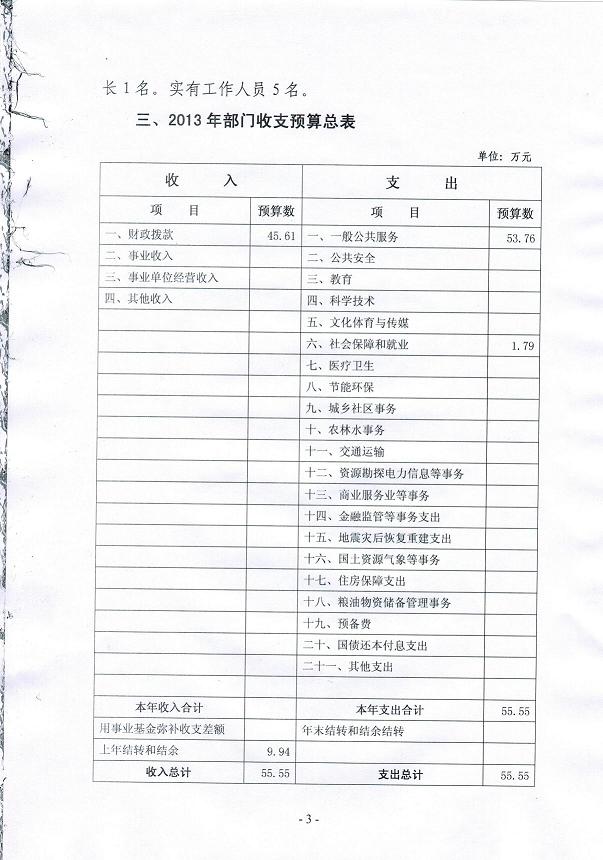 长1名。实有工作人员5名。
三、2013年部门收支预算总表
单位：万元
收 入 支 出
项 目 预算数 项 目 预算数
一、财政拨款 45.61 一、一般公共服务 53.76
二、事业收入 二、公共安全
三、事业单位经营收入 三、教育
四、其他收入 四、科学技术
五、文化体育与传媒
六、社会保障和就业 1.79
七、医疗卫生
八、节能环保
九、城乡社区事务
十、农林水事务
十一、交通运输
十二、资源勘探电力信息等事务
十三、商业服务业等事务
十四、金融监管等事务支出
十五、地震灾后恢复重建支出
十六、国土资源气象等事务
十七、住房保障支出
十八、粮油物资储备管理事务
十九、预备费
二十、国债还本付息支出
二十一、其他支出
本年收入合计 本年支出合计 55.55
用事业基金弥补收支差额 年末结转和结余结转
上年结转和结余 9.94
收入总计 55.55 支出总计 55.55
- 3 -